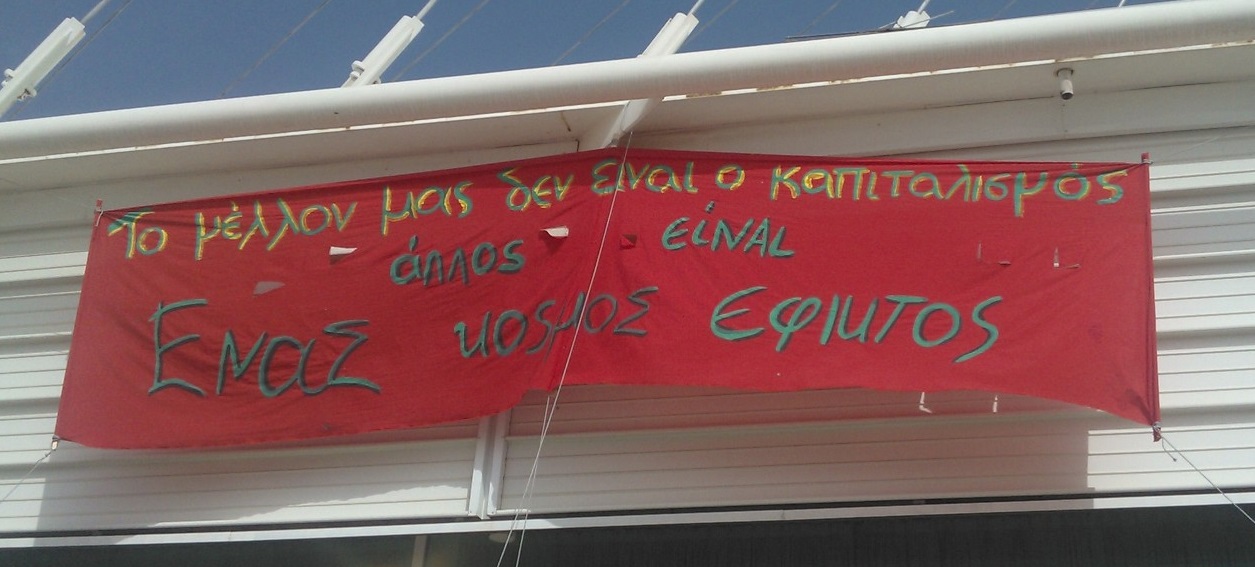 Το μέλλον μας δεν είναι ο καπιταλισμός
άλλος είναι
Ενας κοσμος Εφικτος